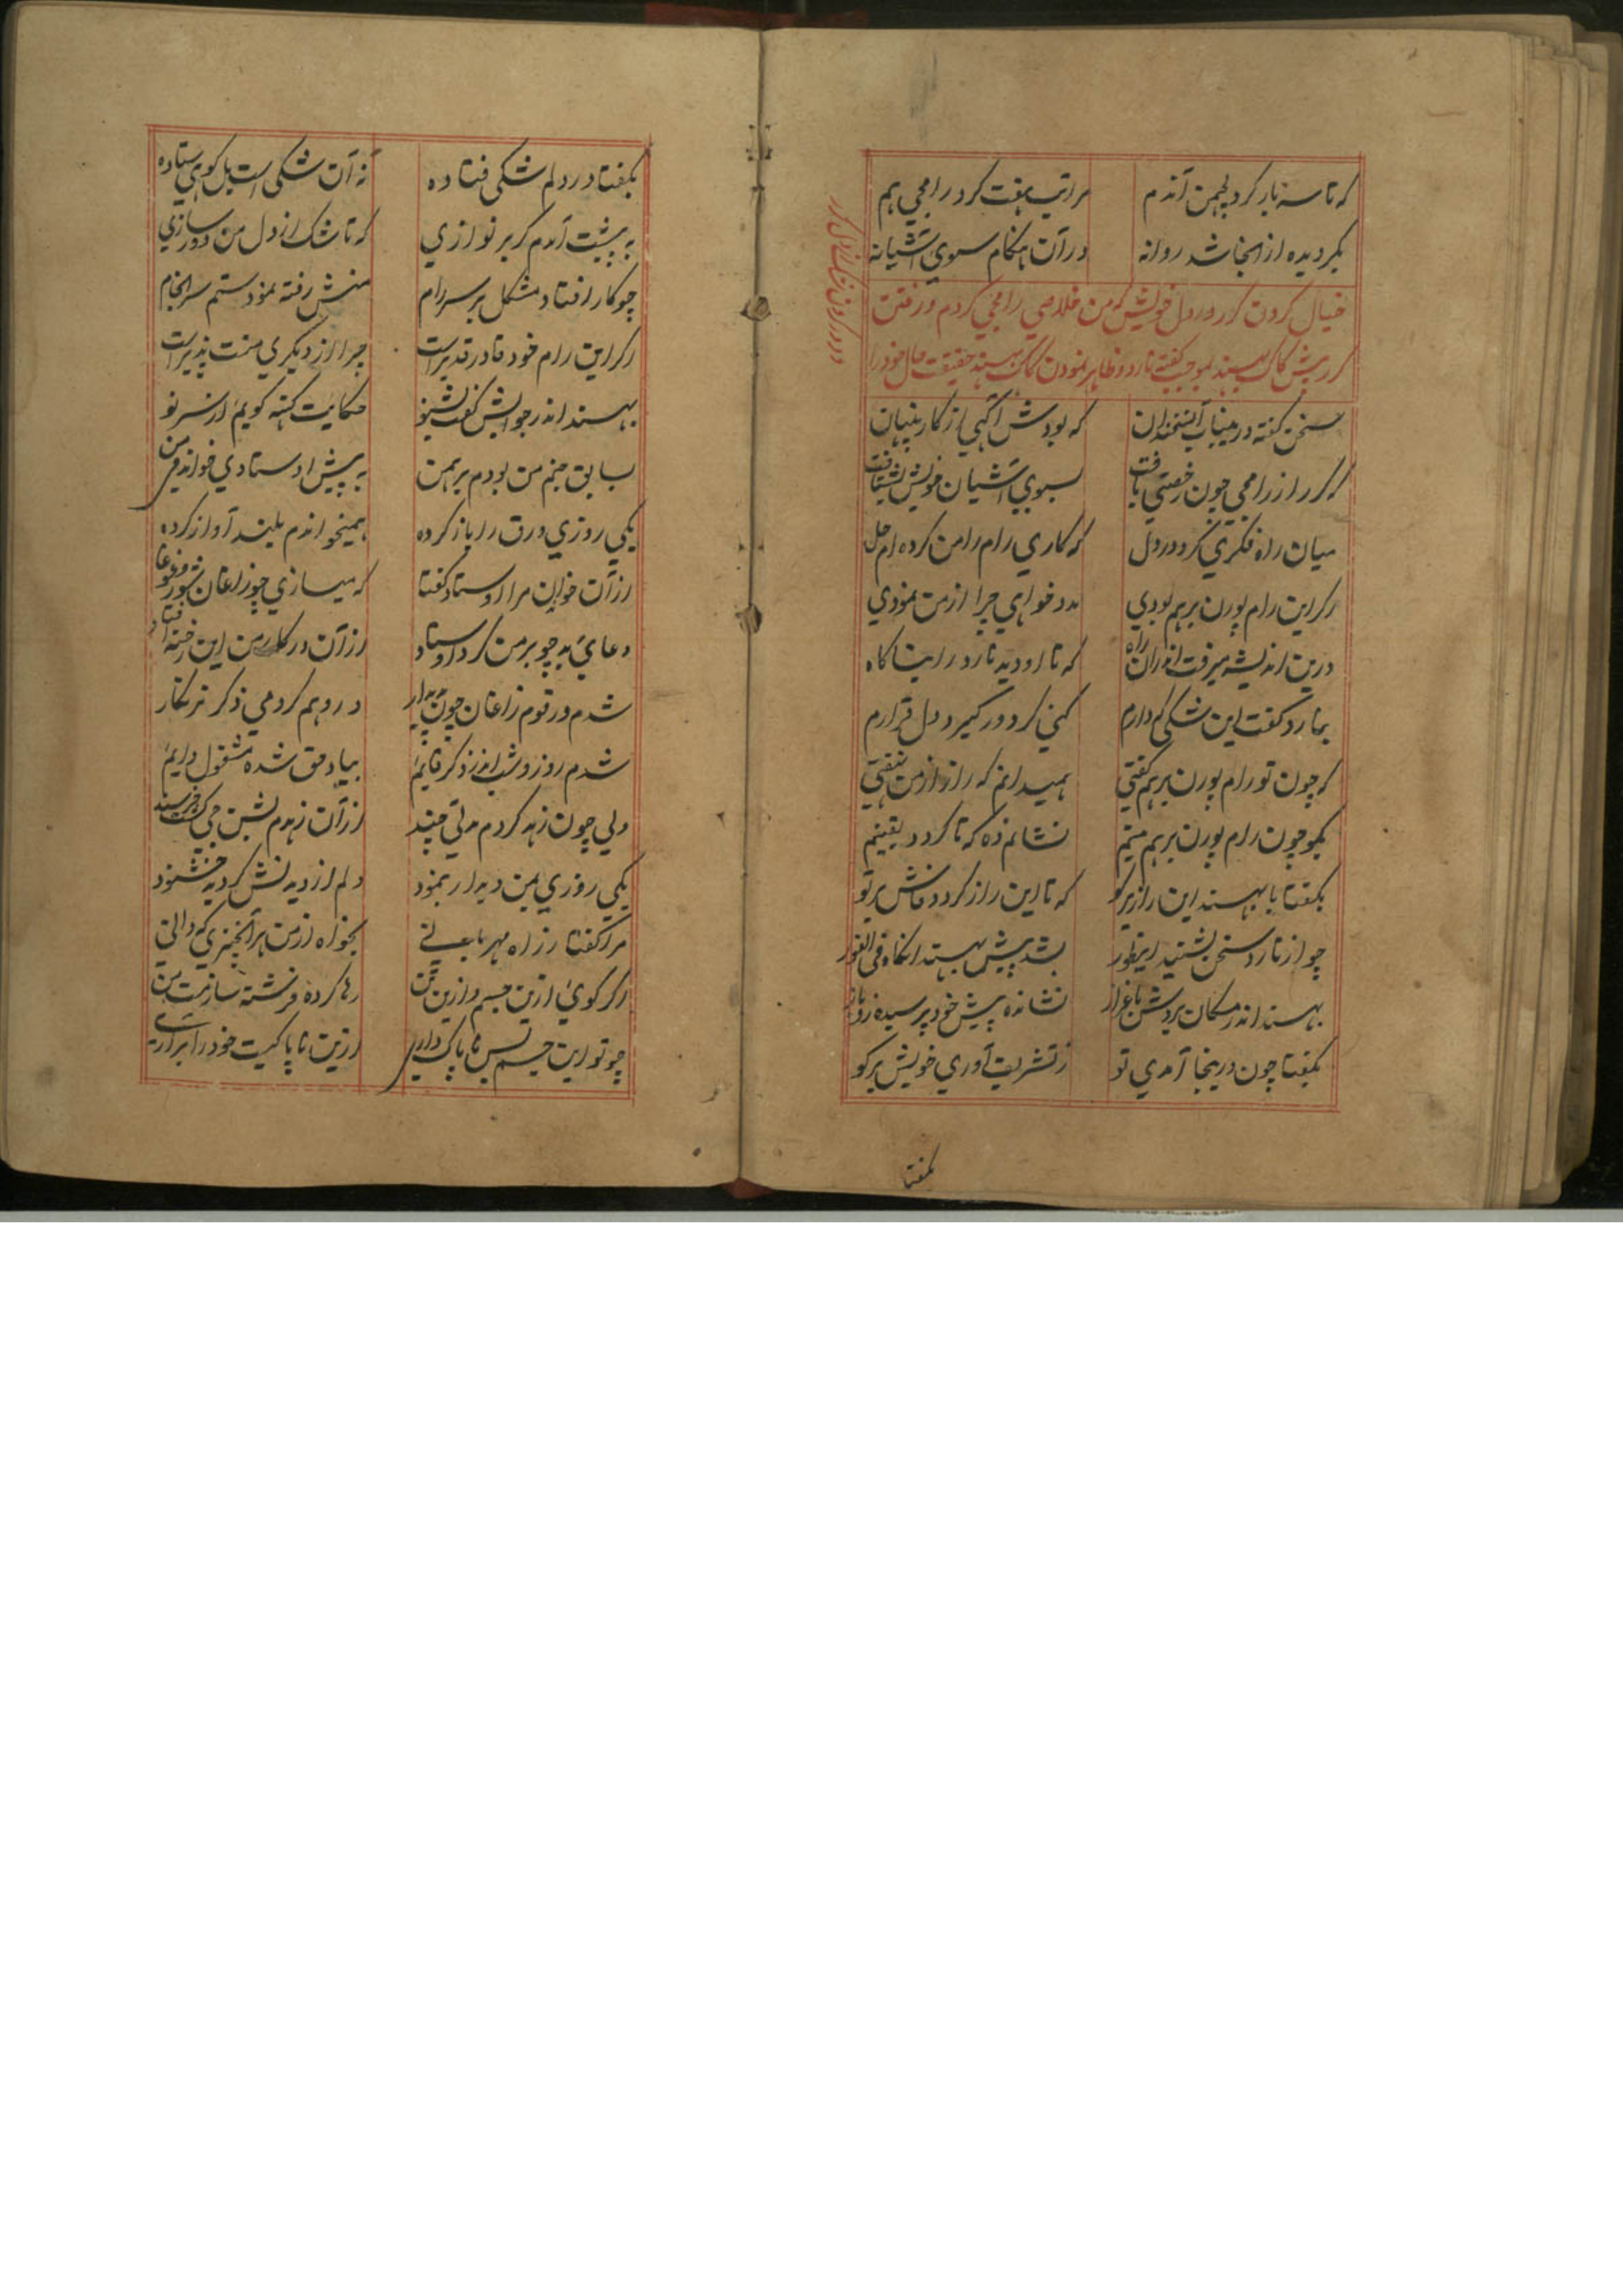 که تا سه بار کرد لچهمن آندم مراتب هفت کرد رامجی هم
بگردیده از انجا شد روانه در آن هنگام سوی آشیانه
خیال کردن گرر در دل خویش که من خلاصی رامجی کردم و رفتن
گرر پیش کاک بهسند بموجب گفته نارد و ظاهر نمودن کاک بهسند حقیقت حال خود را
سخن گفته درینباب آن سخندان که بودش آگهی از کار پنهان
گرر از رامجی چون رخصتی یافت بسوی آشیان خویش بشتافت
میان راه فکری کرد در دل که کاری رام را من کرده ام حل
اگر این رام پورن برهم بودی مدد خواهی چرا از من نمودی
درین اندیشه میرفت اندران راه که تا او دید نارد را بناگاه
بنارد گفت این شکی که دارم کنی گر دور گیرد دل قرارم
که چون تو رام پورن برهم گفتی همیدانم که راز از من نهفتی
بگو چون رام پورن برهم بینم نشانم ده که تا گردد یقینم
بگفتا با بهسند این راز برگو که تا این راز گردد فاش بر تو
چو از نارد سخن بشنید اینطور بشد پیش بهسند انگاه فی الفور
بهسند اندر مکان بردش باعزاز نشانده پیش خود پرسید زو باز
بگفتا چون درینجا آمدی تو ز تشریف آوری خویش برگو
بگفتا
بگفتا در دلم شکی فتاده نه آن شکی است بل کوهی ستاده
به پیشت آمدم گر بر نوازی که تا شک از دل من دور سازی
چو کار افتاد مشکل بر سر رام منش رفته نمودستم سرانجام
اگر این رام خود قادر قدیر است چرا از دیگری منت پذیر است
بهسند اندر جوابش گفت بشنو حکایت کهنه گویم از سر نو
بسابق جنم من بودم برهمن به پیش اوستادی خواندمی من
یکی روزی ورق را باز کرده همیخواندم بلند آواز کرده
از آن خواندن مرا اوستاد گفتا که میسازی چو زاغان شور و غوغا
دعای بد چو بر من کرد اوستاد از آن در کار من این رخنه افتاد
شدم در قوم زاغان چون پدیدار در وهم کردمی ذکر نرنکار
شدم روز و شب اندر ذکر قائم بیاد حق شده مشغول دایم
ولی چون زهد کردم مدتی چند از آن زهدم بشن جی گشت خرسند
یکی روزی بمن دیدار بنمود دلم از دیدنش گردید خشنود
مرا گفتا ز راه مهربانی بخواه از من هر آنچیزی که دانی
اگر گوی ازین جسم و ازین تن رها کرده فرشته سازمت من
چو تو این جسم بس ناپاک داری ازین ناپاکیت خود را براری